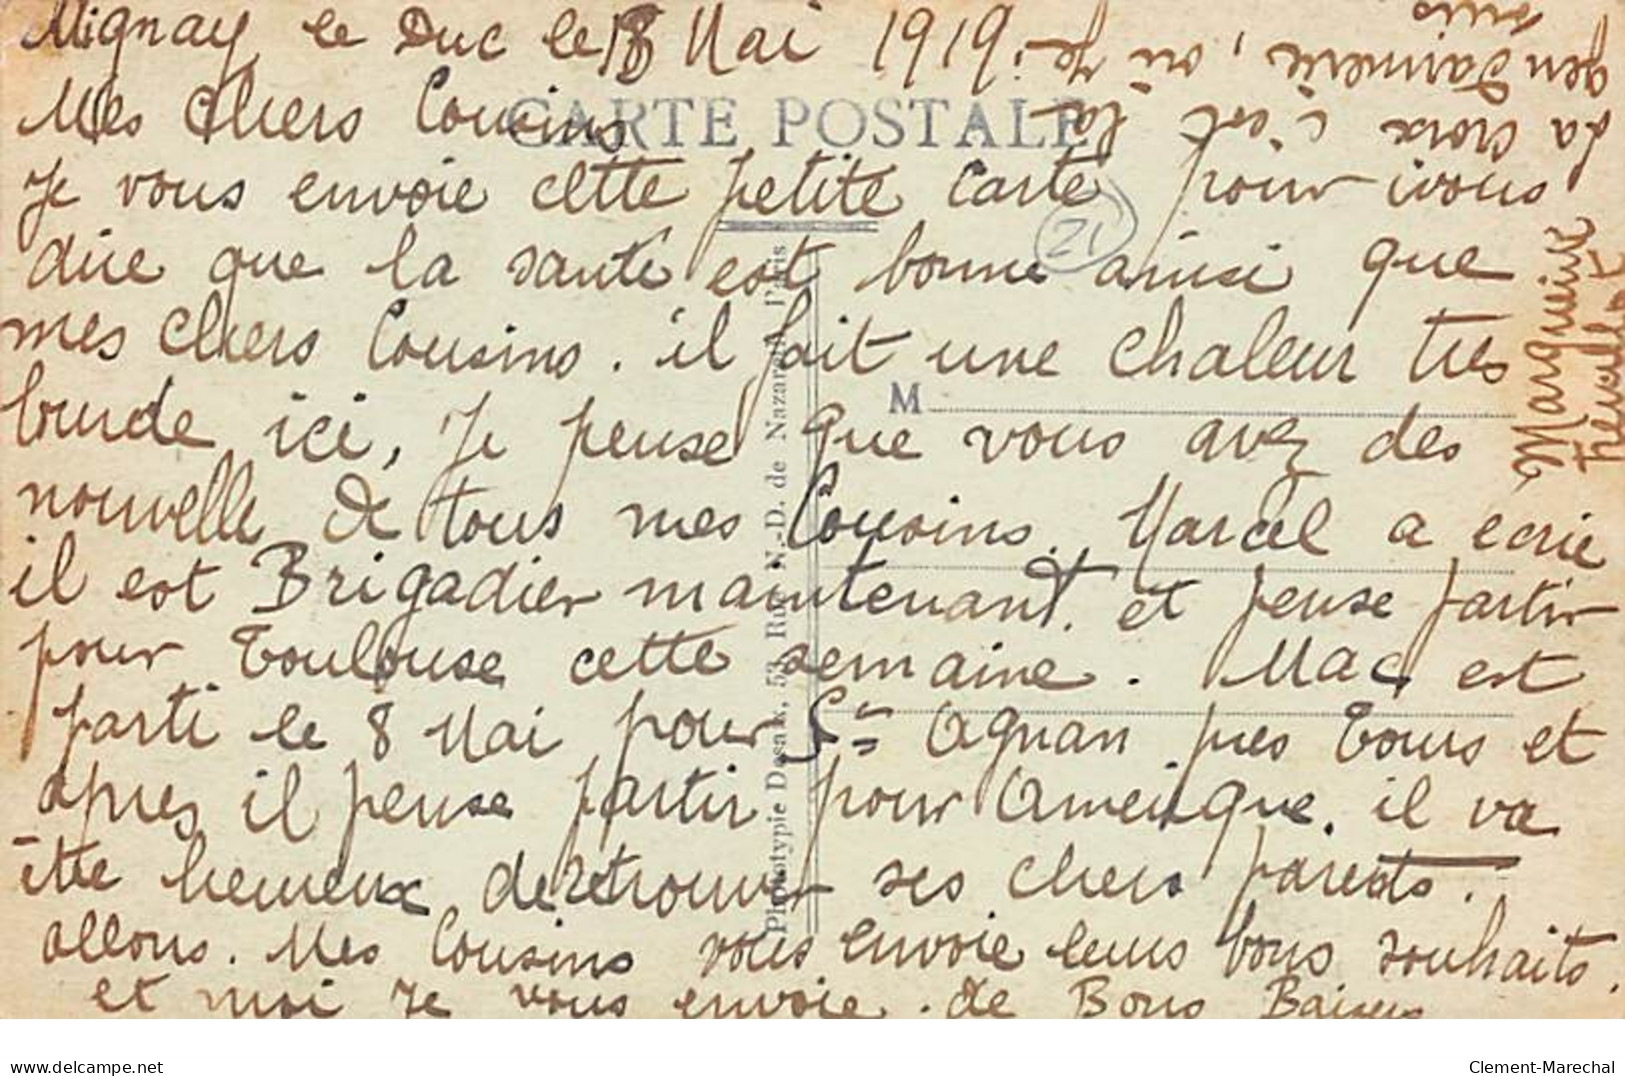 Mignay le Duc le 18 Mai 1919.
Mes chers Cousins
CARTE POSTALE
Je vous envoie cette petite carte pour vous
dire que la santé est bonne ainsi que
mes chers Cousins. il fait une chaleur tres
lourde ici, Je pense que vous avez des
nouvelle de tous mes Cousins. Marcel a ecrie
il est Brigadier maintenant. et pense partir
pour Toulouse cette semaine. Mac est
parti le 8 Mai pour St Agnan pres Tours et
apres il pense partir pour Amerique. il va
être heureux de retrouver ses chers parents.
allons. Mes Cousins vous envoie leurs bons souhaits.
et moi je vous envoie. de Bons Baisers
Marguerite
La croix c'est la
gendarmerie, ou je
suis
21
M
Phototypie Desaix, 53, Rue N.-D. de Nazareth, Paris
www.delcampe.net
Clement-Marechal